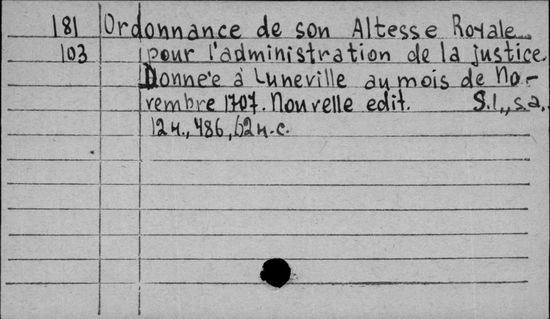 181 Ordonnance de son Altesse Royale
103 pour l'administration de la justice.
Donnée à Luneville au mois de No-
vembre 1707. Nouvelle edit. S.l., s.a.,
12 н., 486, 62 н.с.